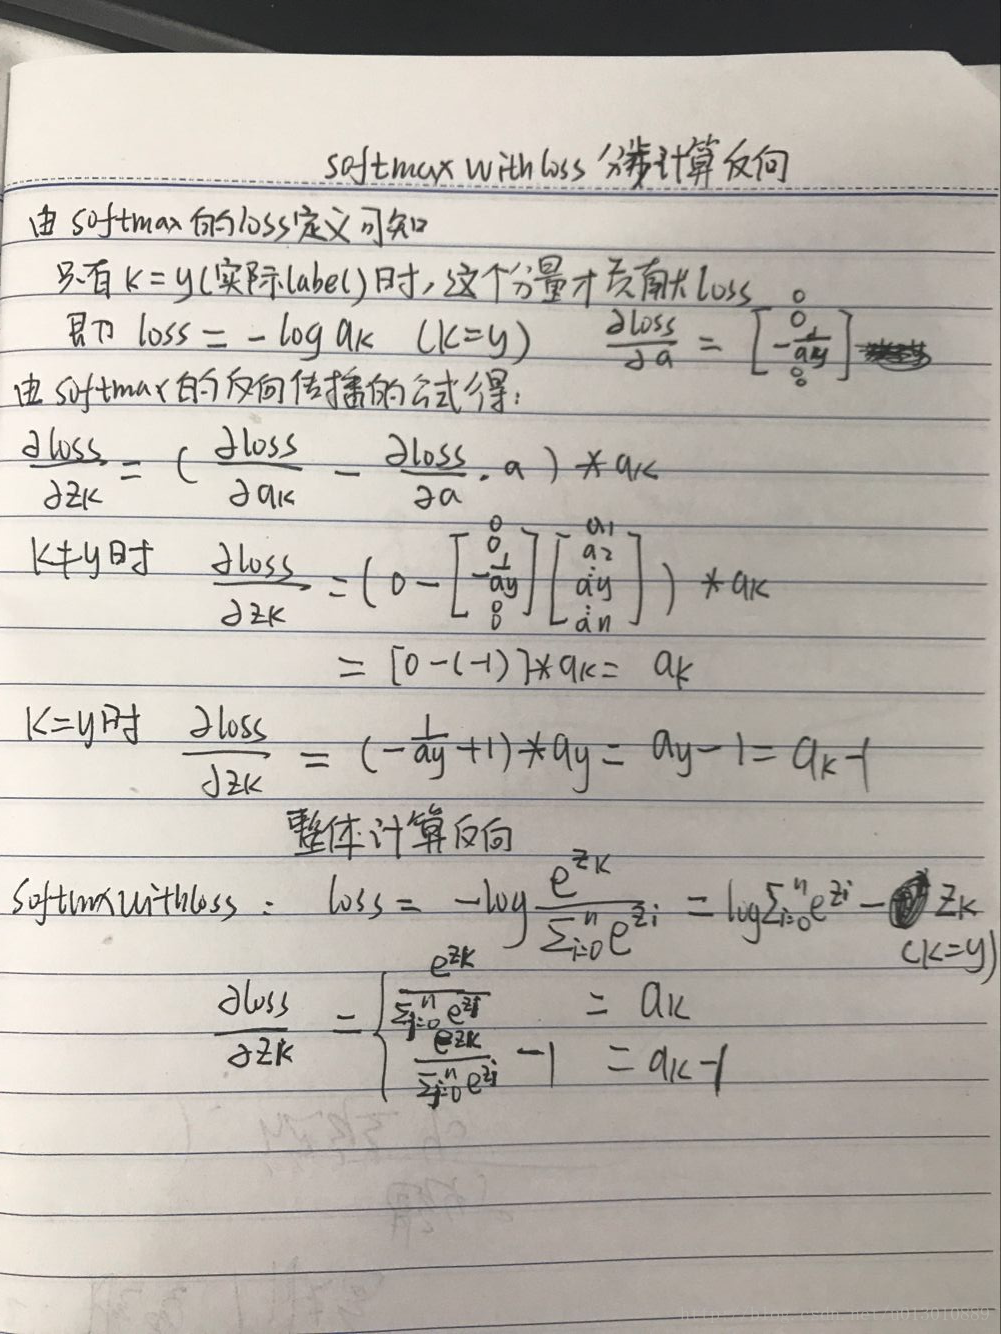 softmax with loss 分步计算反向
由 softmax 的 loss 定义可知
只有 k = y (实际 label) 时, 这个分量才贡献 loss
即 loss = - log ak (k=y) ∂loss/∂a = [0 0 -1/ay 0]
由 softmax 的反向传播的公式得:
∂loss/∂zk = ( ∂loss/∂ak - ∂loss/∂a · a ) * ak
k≠y 时 ∂loss/∂zk = ( 0 - [0 0 -1/ay 0 0] [a1 a2 : ay : an] ) * ak
= [0-(-1)]*ak = ak
k=y 时 ∂loss/∂zk = (-1/ay +1)*ay = ay-1 = ak-1
整体计算反向
softmxwithloss: loss = -log e^zk / Σ_{i=0}^n e^zi = log Σ_{i=0}^n e^zi - zk
(k=y)
∂loss/∂zk = { e^zk / Σ_{j=0}^n e^zj = ak
e^zk / Σ_{j=0}^n e^zj - 1 = ak-1